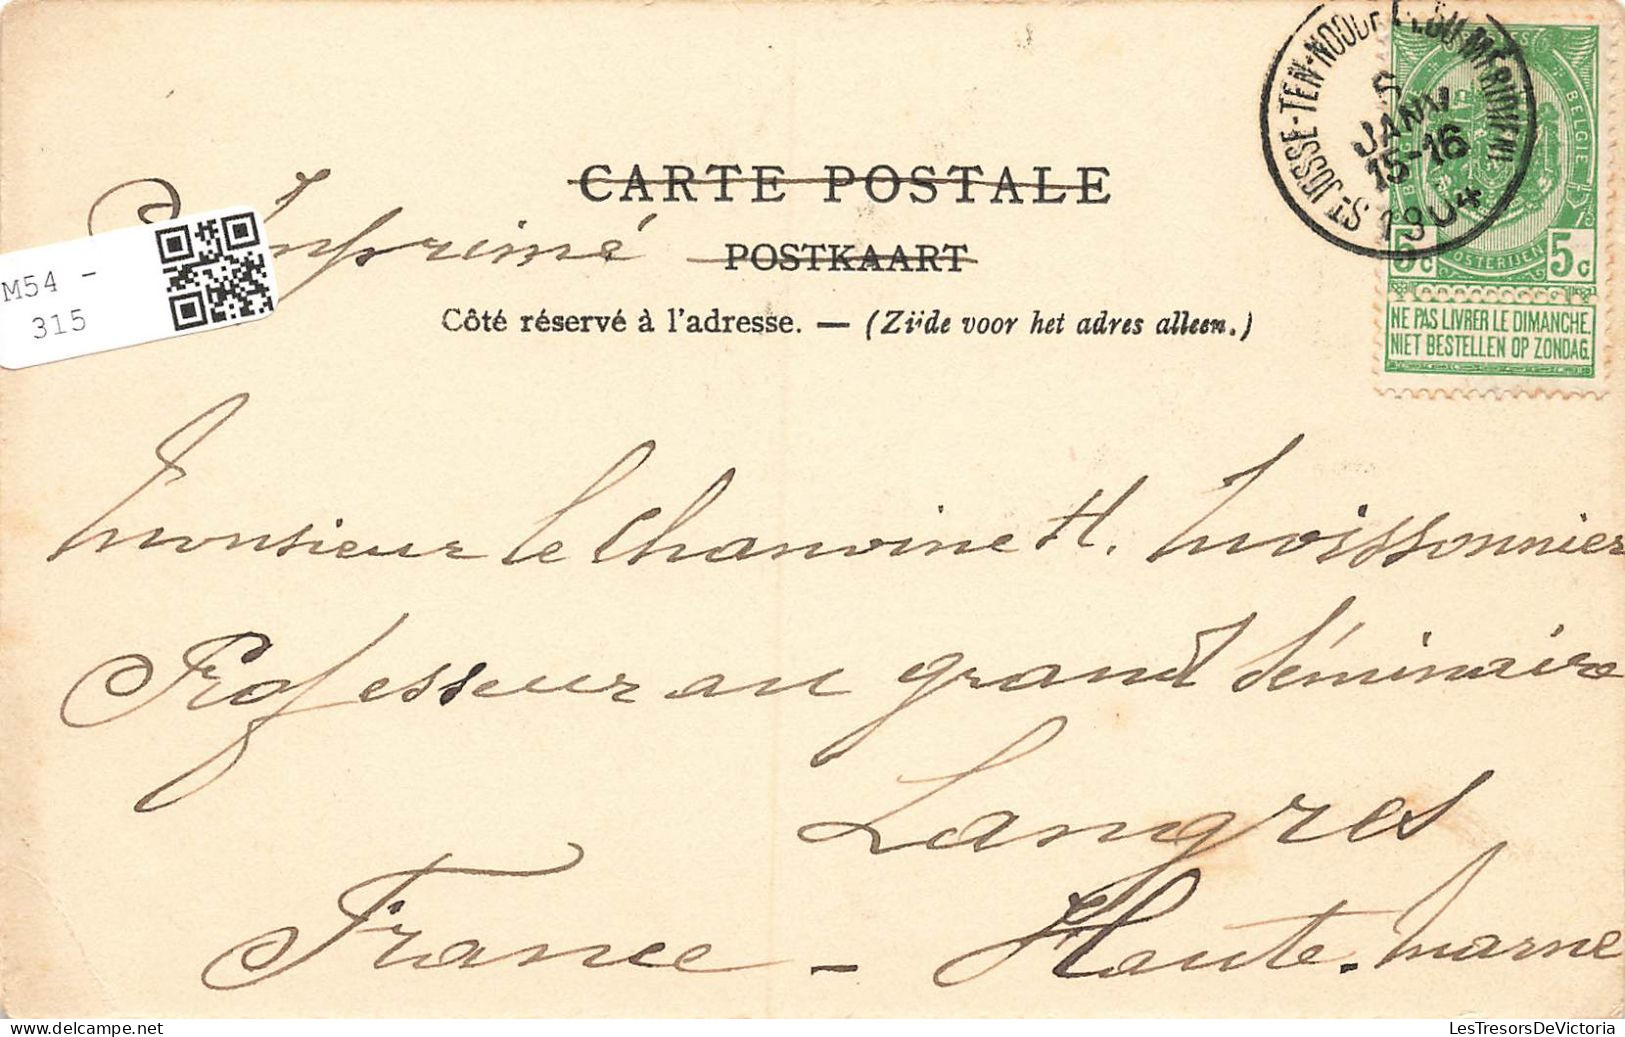 ST JOSSE-TEN-NOODE (PL. DU MÉRIDIEN)
5
JANV
15-16
1904
BELGIE
5c 5c
NE PAS LIVRER LE DIMANCHE.
NIET BESTELLEN OP ZONDAG.
CARTE POSTALE
Imprimé
POSTKAART
M54 -
315
Côté réservé à l'adresse. — (Zijde voor het adres alleen.)
Monsieur le Chanoine H. Moissonnier
Professeur au grand Séminaire
Langres
France - Haute-Marne
LesTresorsDeVictoria